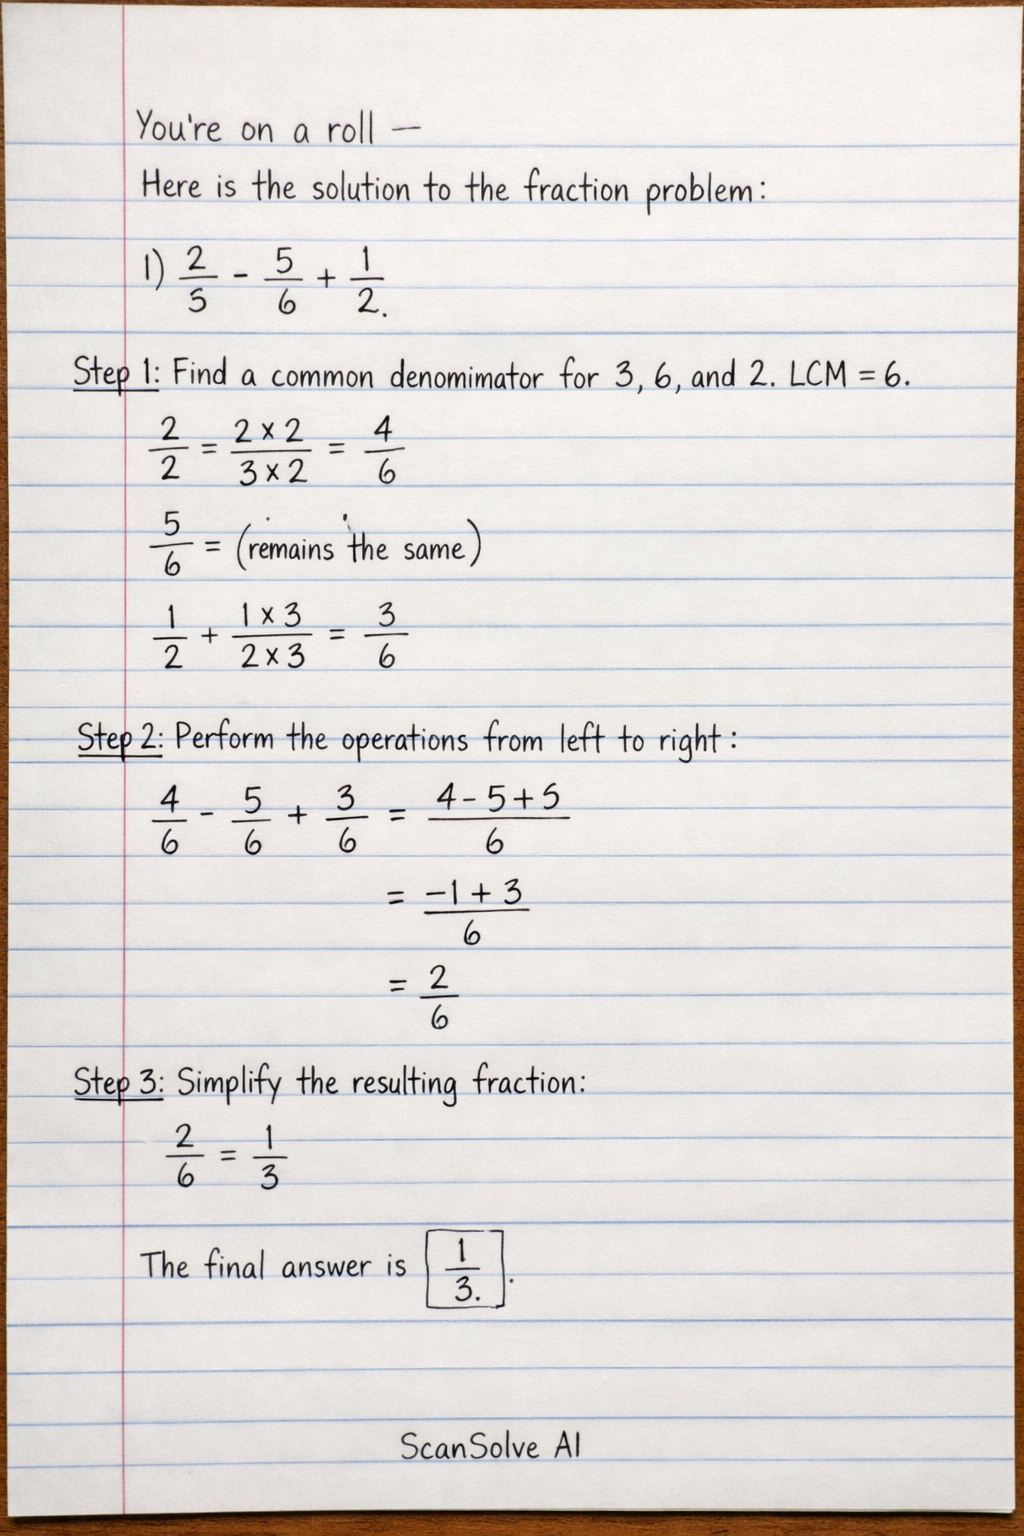 You're on a roll —
Here is the solution to the fraction problem:
1) 2/5 - 5/6 + 1/2.
Step 1: Find a common denomimator for 3, 6, and 2. LCM = 6.
2/2 = 2 x 2/3 x 2 = 4/6
5/6 = (remains the same)
1/2 + 1 x 3/2 x 3 = 3/6
Step 2: Perform the operations from left to right:
4/6 - 5/6 + 3/6 = 4 - 5 + 5/6
= -1 + 3/6
= 2/6
Step 3: Simplify the resulting fraction:
2/6 = 1/3
The final answer is 1/3..
ScanSolve AI